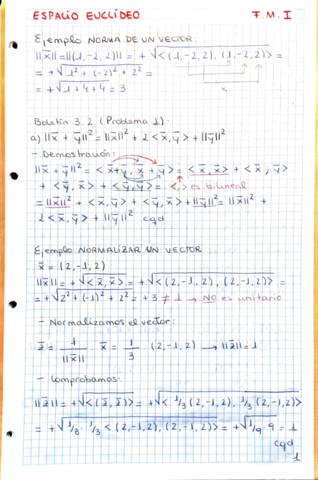 ESPACIO EUCLÍDEO F.M.I
Ejemplo NORMA DE UN VECTOR
||x̄|| = ||(1,-2,2)|| = +√<(1,-2,2), (1,-2,2)> =
= +√1² + (-2)² + 2² =
= +√1+4+4 = 3
x
Boletín 3.2 (Problema 1):
a) ||x̄ + ȳ||² = ||x̄||² + 2<x̄,ȳ> + ||ȳ||²
- Demostración:
||x̄ + ȳ||² = <x̄+ȳ, x̄+ȳ> = <x̄,x̄> + <x̄,ȳ>
+ <ȳ,x̄> + <ȳ,ȳ> = <,> es bilineal
= ||x̄||² + <x̄,ȳ> + <ȳ,x̄> + ||ȳ||² = ||x̄||² +
2<x̄,ȳ> + ||ȳ||² cqd
Ejemplo NORMALIZAR UN VECTOR
x̄ = (2,-1,2)
||x̄|| = +√<x̄,x̄> = +√<(2,-1,2), (2,-1,2)> =
= +√2² + (-1)² + 2² = +3 ≠ 1 → NO es unitario
- Normalizamos el vector:
z̄ = 1/||x̄|| x̄ = 1/3 (2,-1,2) → ||z̄|| = 1
- Comprobamos:
||z̄|| = +√<(z̄,z̄)> = +√<1/3(2,-1,2), 1/3(2,-1,2)>
= +√1/3 · 1/3 <(2,-1,2), (2,-1,2)> = +√1/9 · 9 = 1
cqd
1